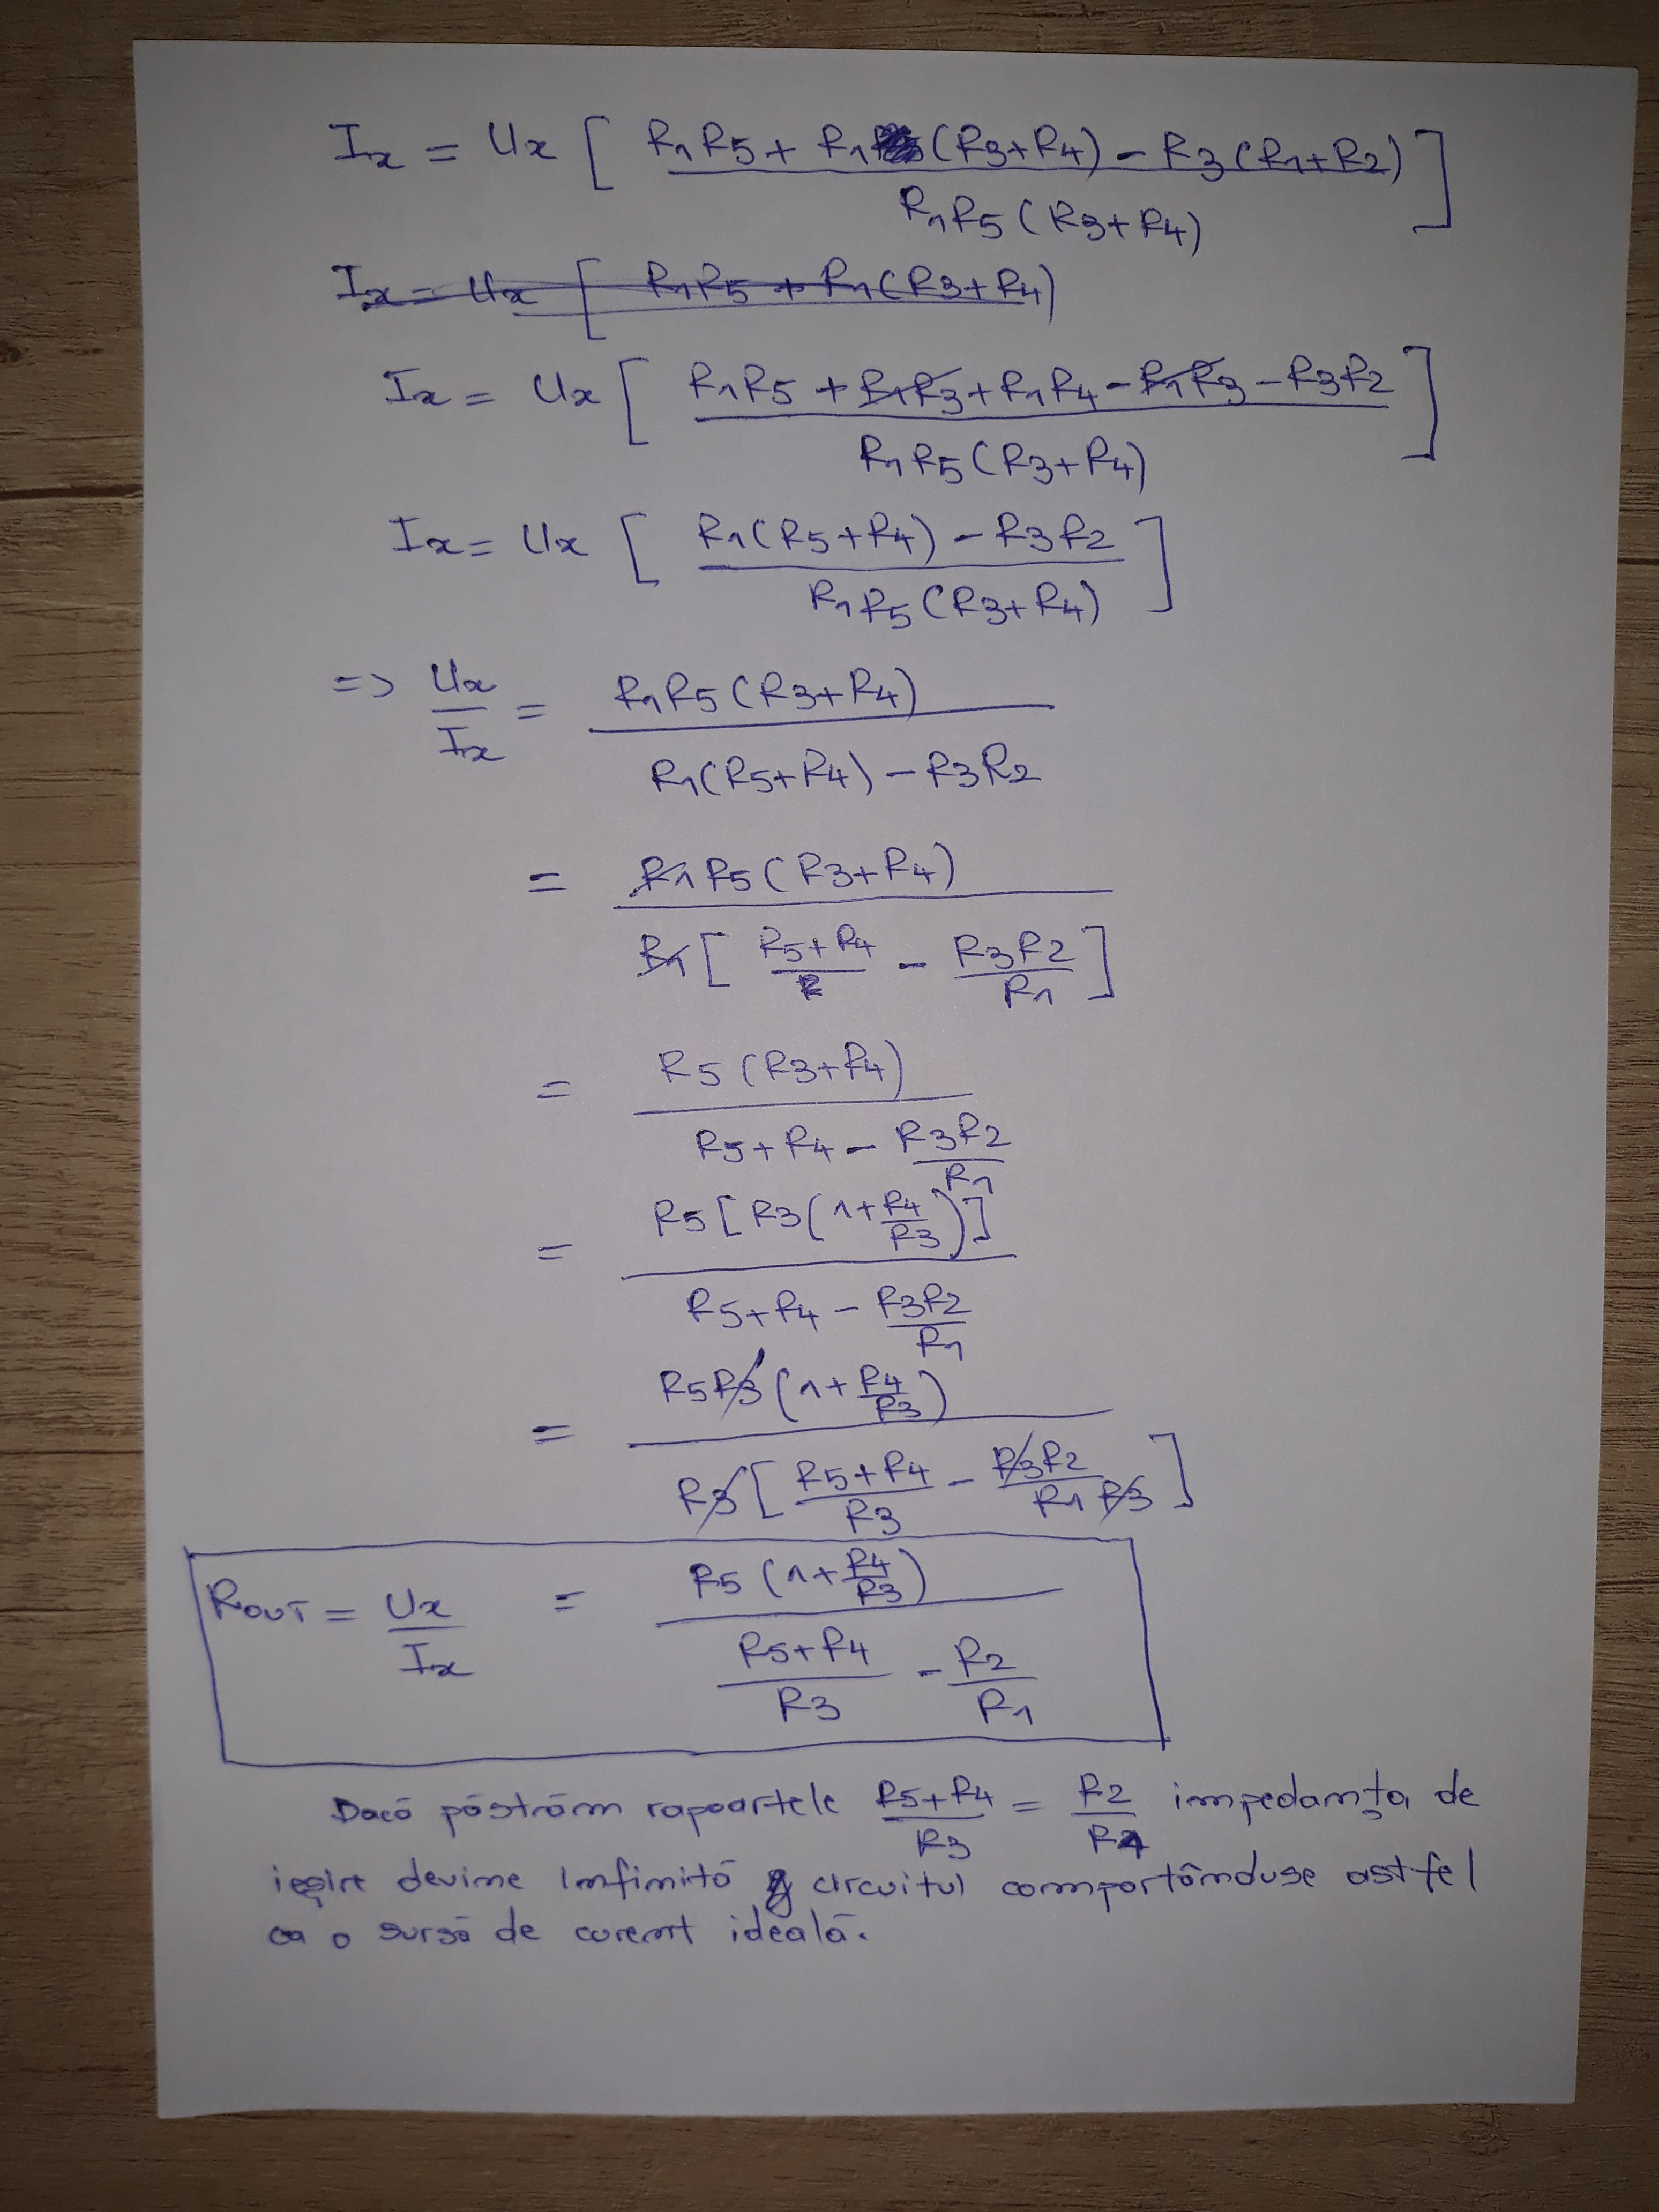 Ix = Ux [ R1R5 + R1(R3+R4) - R3(R1+R2) / R1R5(R3+R4) ]
Ix = Ux [ R1R5 + R1(R3+R4)
Ix = Ux [ R1R5 + R1R3 + R1R4 - R1R3 - R3R2 / R1R5(R3+R4) ]
Ix = Ux [ R1(R5+R4) - R3R2 / R1R5(R3+R4) ]
=> Ux/Ix = R1R5(R3+R4) / R1(R5+R4) - R3R2
= R1R5(R3+R4) / R1[ R5+R4 - R3R2/R1 ]
= R5(R3+R4) / R5+R4 - R3R2/R1
= R5[R3(1+R4/R3)] / R5+R4 - R3R2/R1
= R5R3(1+R4/R3) / R3[ R5+R4/R3 - R3R2/R1R3 ]
ROUT = Ux/Ix = R5(1+R4/R3) / R5+R4/R3 - R2/R1
Dacă păstrăm rapoartele R5+R4/R3 = R2/R1 impedanța de
ieșire devine infinită circuitul comportânduse astfel
ca o sursă de curent ideală.